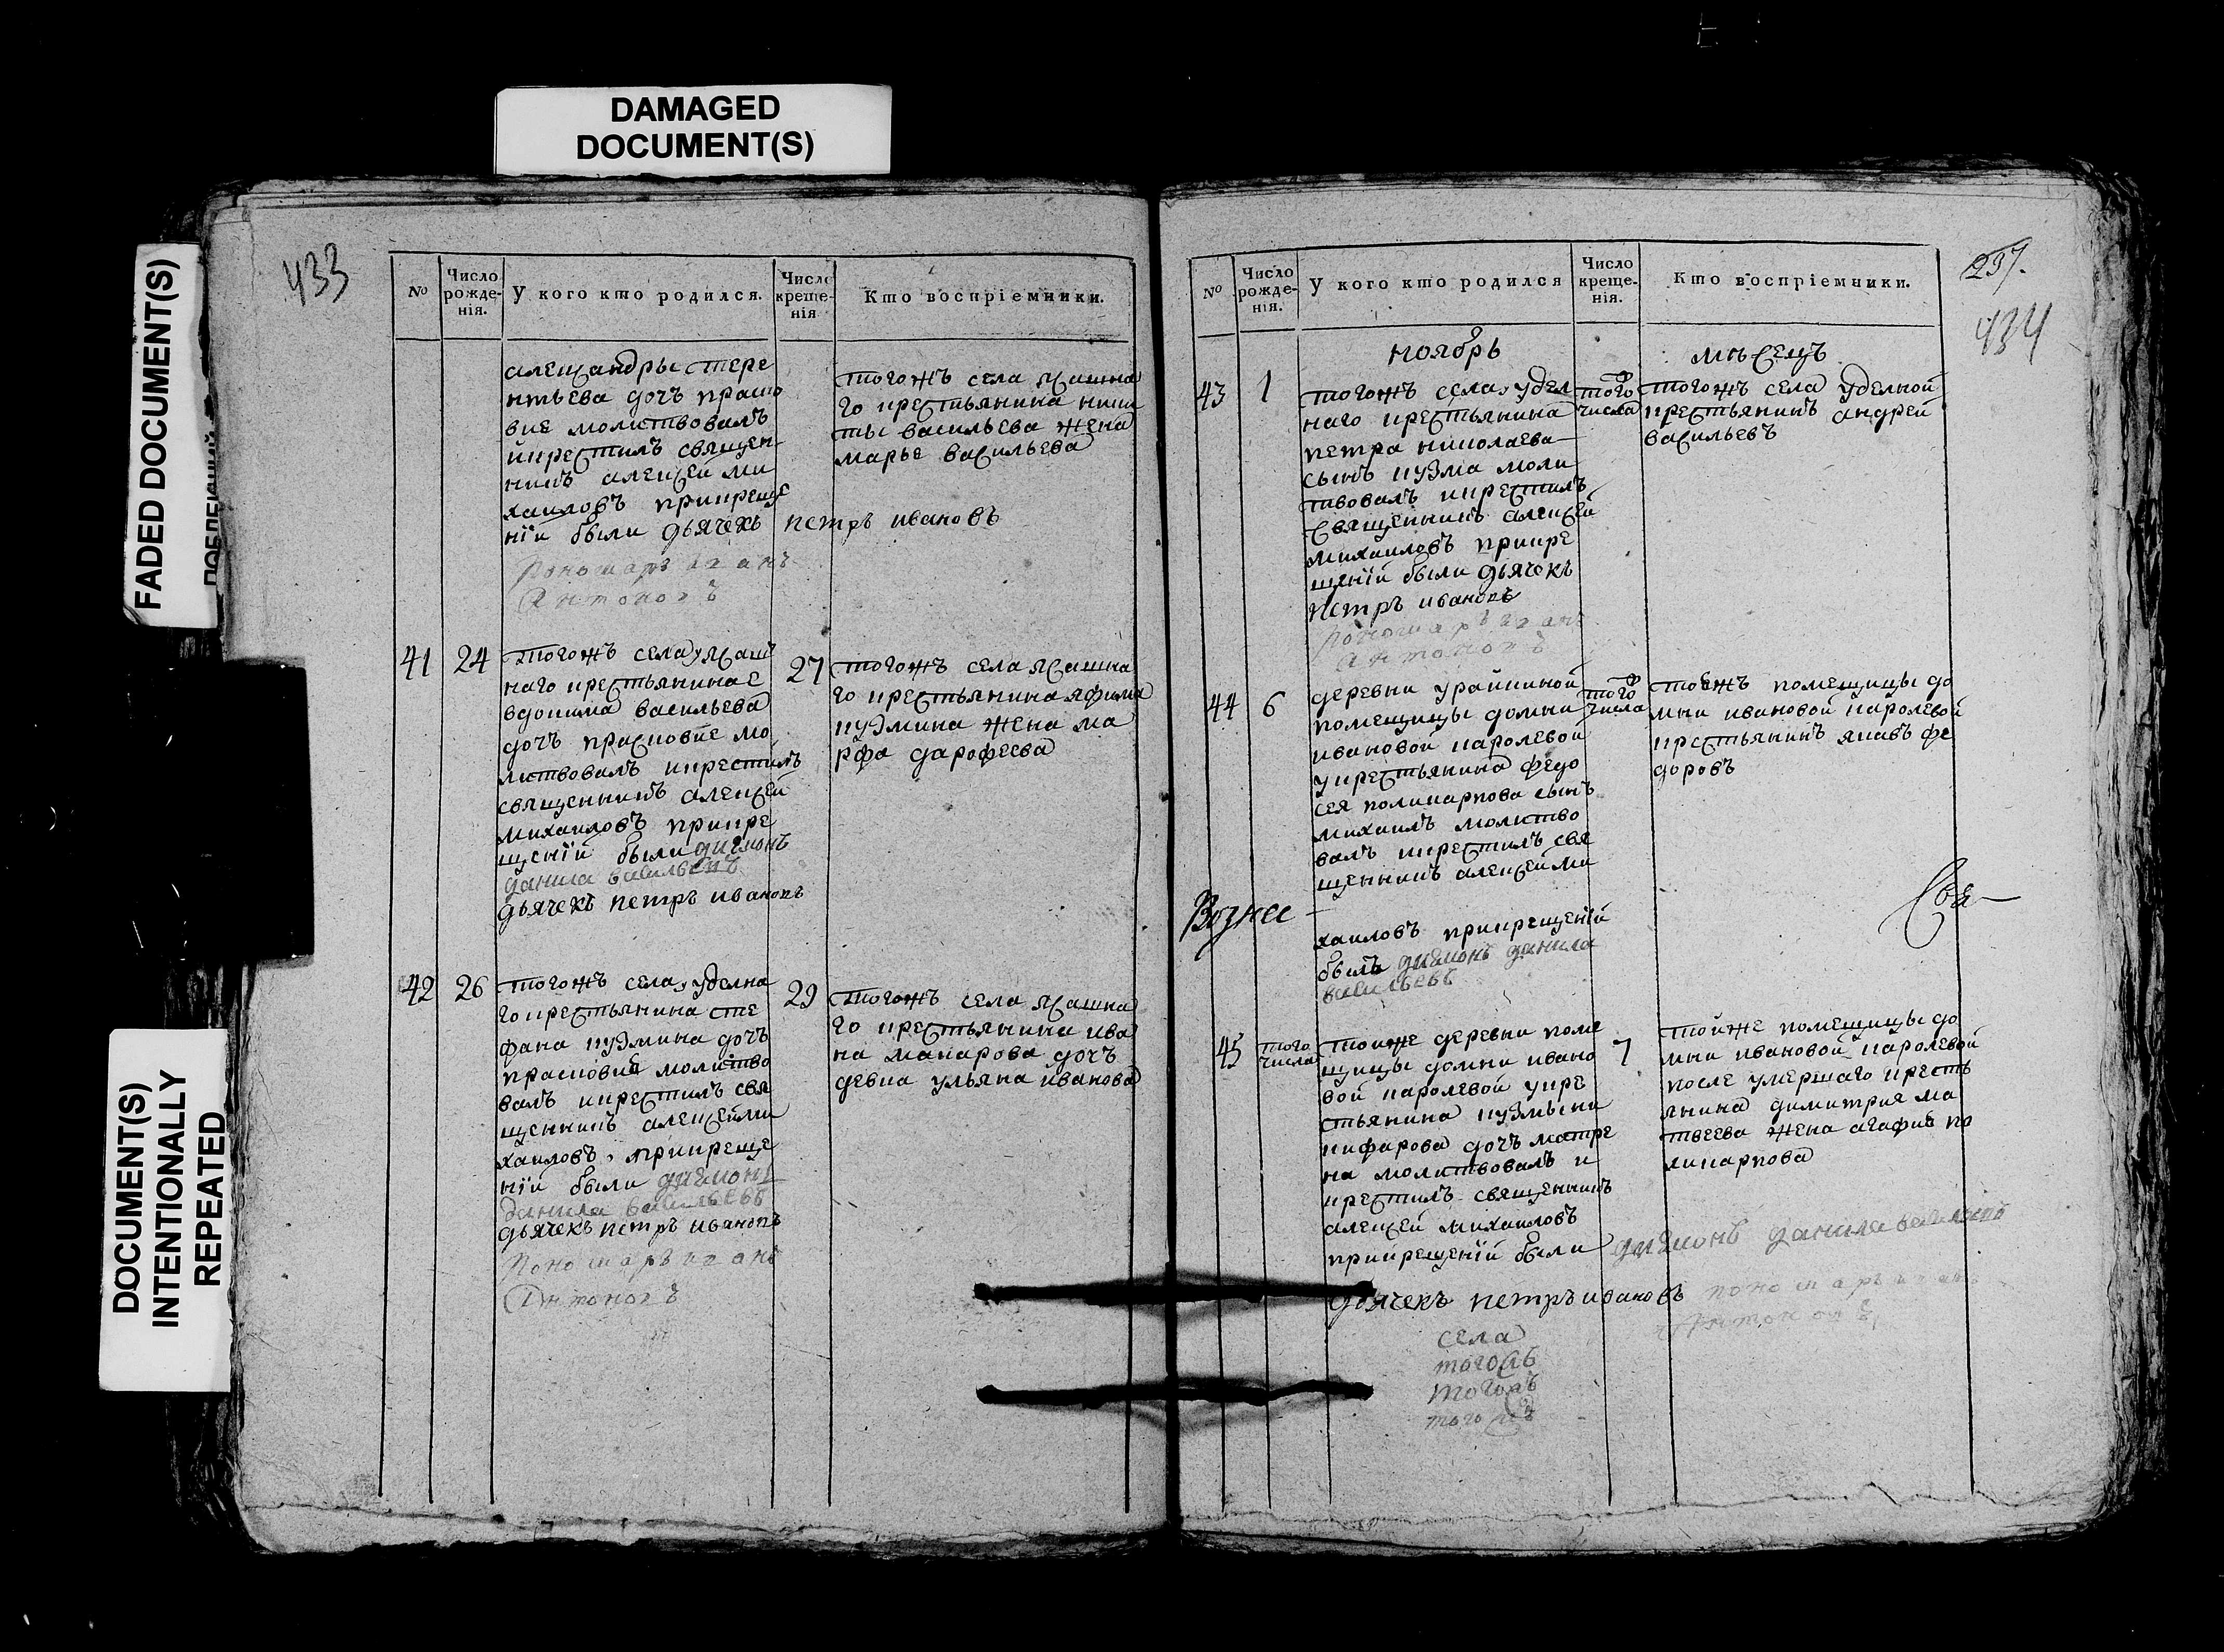 DAMAGED
DOCUMENT(S)
FADED DOCUMENT(S)
DOCUMENT(S)
INTENTIONALLY
REPEATED
433
№
Число рожденія.
У кого кто родился.
Число крещенія
Кто воспріемники.
александры тере
нтьева дочъ праско
вие молитвовалъ
икрестилъ священ
никъ алексей ми
хаиловъ прикреще
нїи были дьячекъ петръ ивановъ
Пономарь иванъ
Антоновъ
тогожъ села ясашна
го крестьянина ники
ты васильева жена
марье васильева
41
24
тогожъ села ясаш
наго крестьянина е
вдокима васильева
дочъ прасковие мо
литвовалъ икрестилъ
священникъ алексей
михаиловъ прикре
щенїи были дияконъ
данила васильевъ
дьячекъ петръ ивановъ
27
тогожъ села ясашна
го крестьянина яфима
кузмина жена ма
рфа дарофеева
42
26
тогожъ села уделна
го крестьянина сте
фана кузмина дочъ
прасковие молитво
валъ икрестилъ свя
щенникъ алексей ми
хаиловъ прикреще
нїи были дияконъ
данила васильевъ
дьячекъ петръ ивановъ
Пономарь иванъ
Антоновъ
29
тогожъ села ясашна
го крестьянина ива
на макарова дочъ
девка ульяна иванова
237.
434
№
Число рожденія.
У кого кто родился
Число крещенія.
Кто воспріемники.
ноябрь
мѣсецъ
43
1
тогожъ села удел
наго крестьянина
петра николаева
сынъ кузма моли
твовалъ икрестилъ
священникъ алексей
михаиловъ прикре
щенїи были дьячекъ
петръ ивановъ
пономарь иванъ
антоновъ
того
числа
тогожъ села уделной
крестьянинъ андрей
васильевъ
44
6
деревни урайкиной
помещицы домны
ивановой каролевой
укрестьянина федо
сея поликарпова сынъ
михаилъ молитво
валъ икрестилъ свя
щенникъ алексей ми
хаиловъ прикрещенїи
былъ дияконъ данила
васильевъ
того
числа
тоежъ помещицы до
мны ивановой каролевой
крстьянинъ яковъ фе
доровъ
Вознес
Свя
45
того
числа
тоиже деревни поме
щицы домны ивано
вой каролевой укре
стьянина кузмы ни
кифарова дочъ матре
на молитвовалъ и
крестилъ священникъ
алексей михаиловъ
прикрещенїи были дияконъ данила васильевъ
дьячекъ петръ ивановъ пономарь иванъ
Антоновъ
7
тойже помещицы до
мны ивановой каролевой
после умершаго кресть
янина димитрия ма
твеева жена агафие по
ликарпова
села